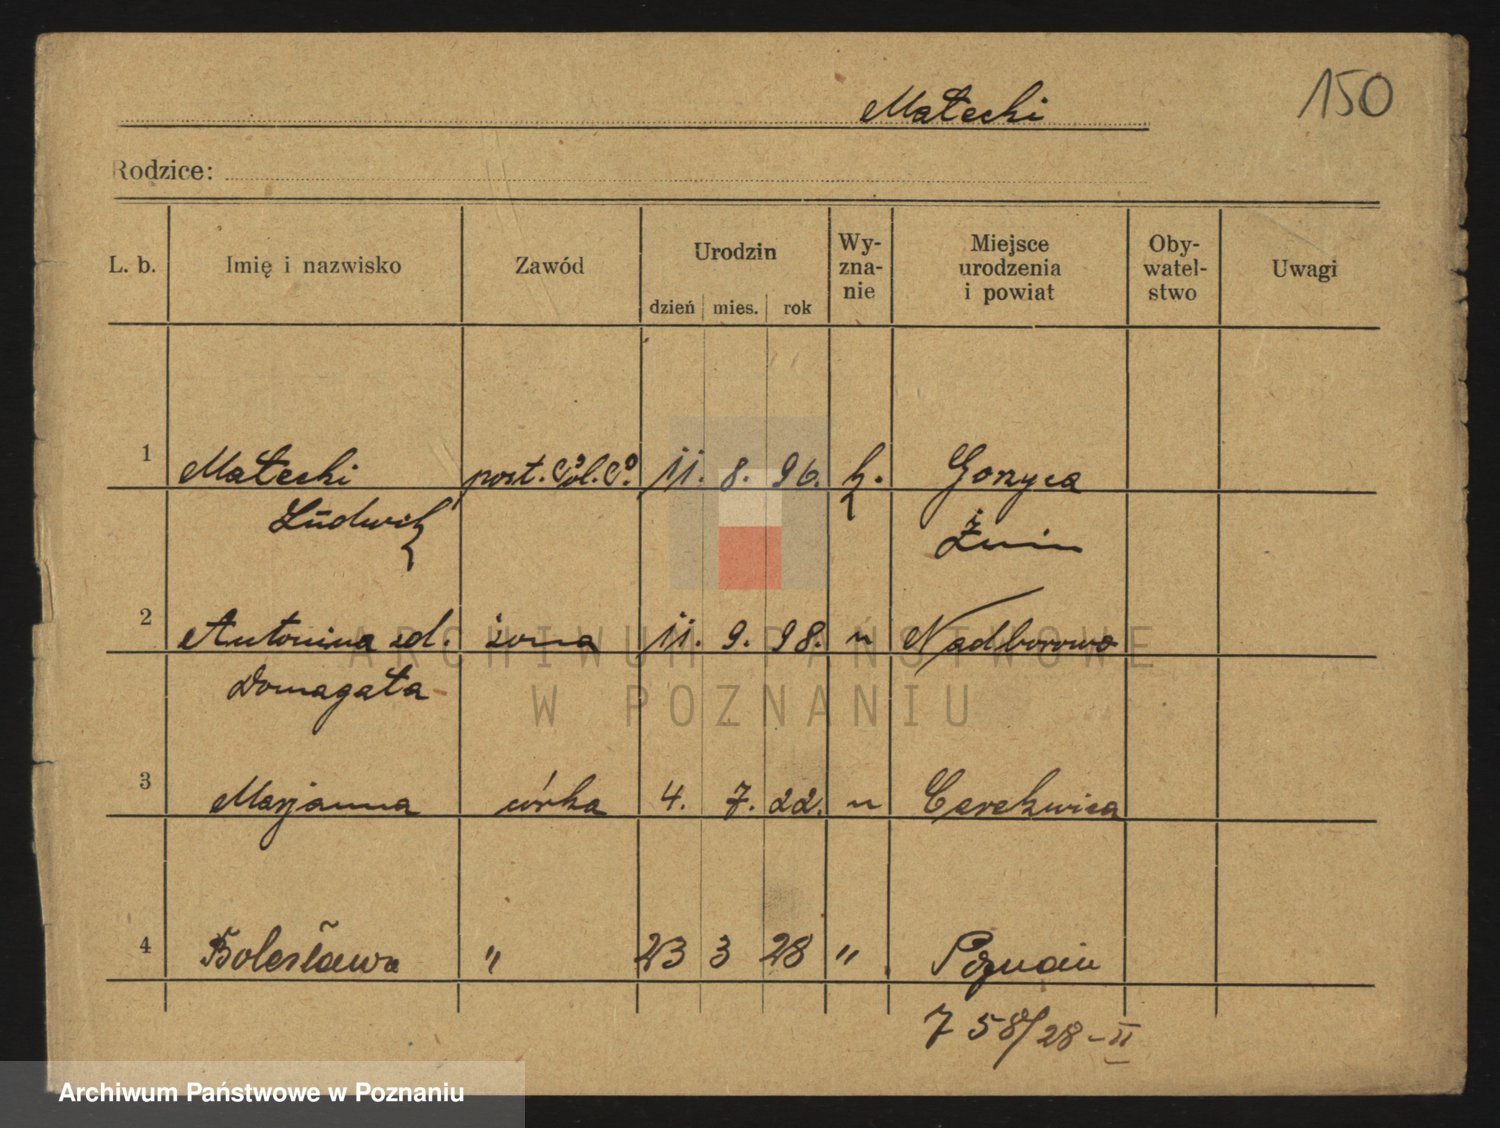 Małecki
150
Rodzice:
L. b. Imię i nazwisko Zawód Urodzin dzień mies. rok Wy-zna-nie Miejsce urodzenia i powiat Oby-watel-stwo Uwagi
1 Małecki post. Pol. P. 11. 8. 96. k. Gorzyca
Ludwik Żnin
2 Antonina zd. żona 11. 9. 98. " Nadborowo
Domagała
3 Marjanna córka 4. 7. 22. " Cerekwica
4 Bolesława " 23 3 28 " Poznań
758/28-II
ARCHIWUM PAŃSTWOWE
W POZNANIU
Archiwum Państwowe w Poznaniu